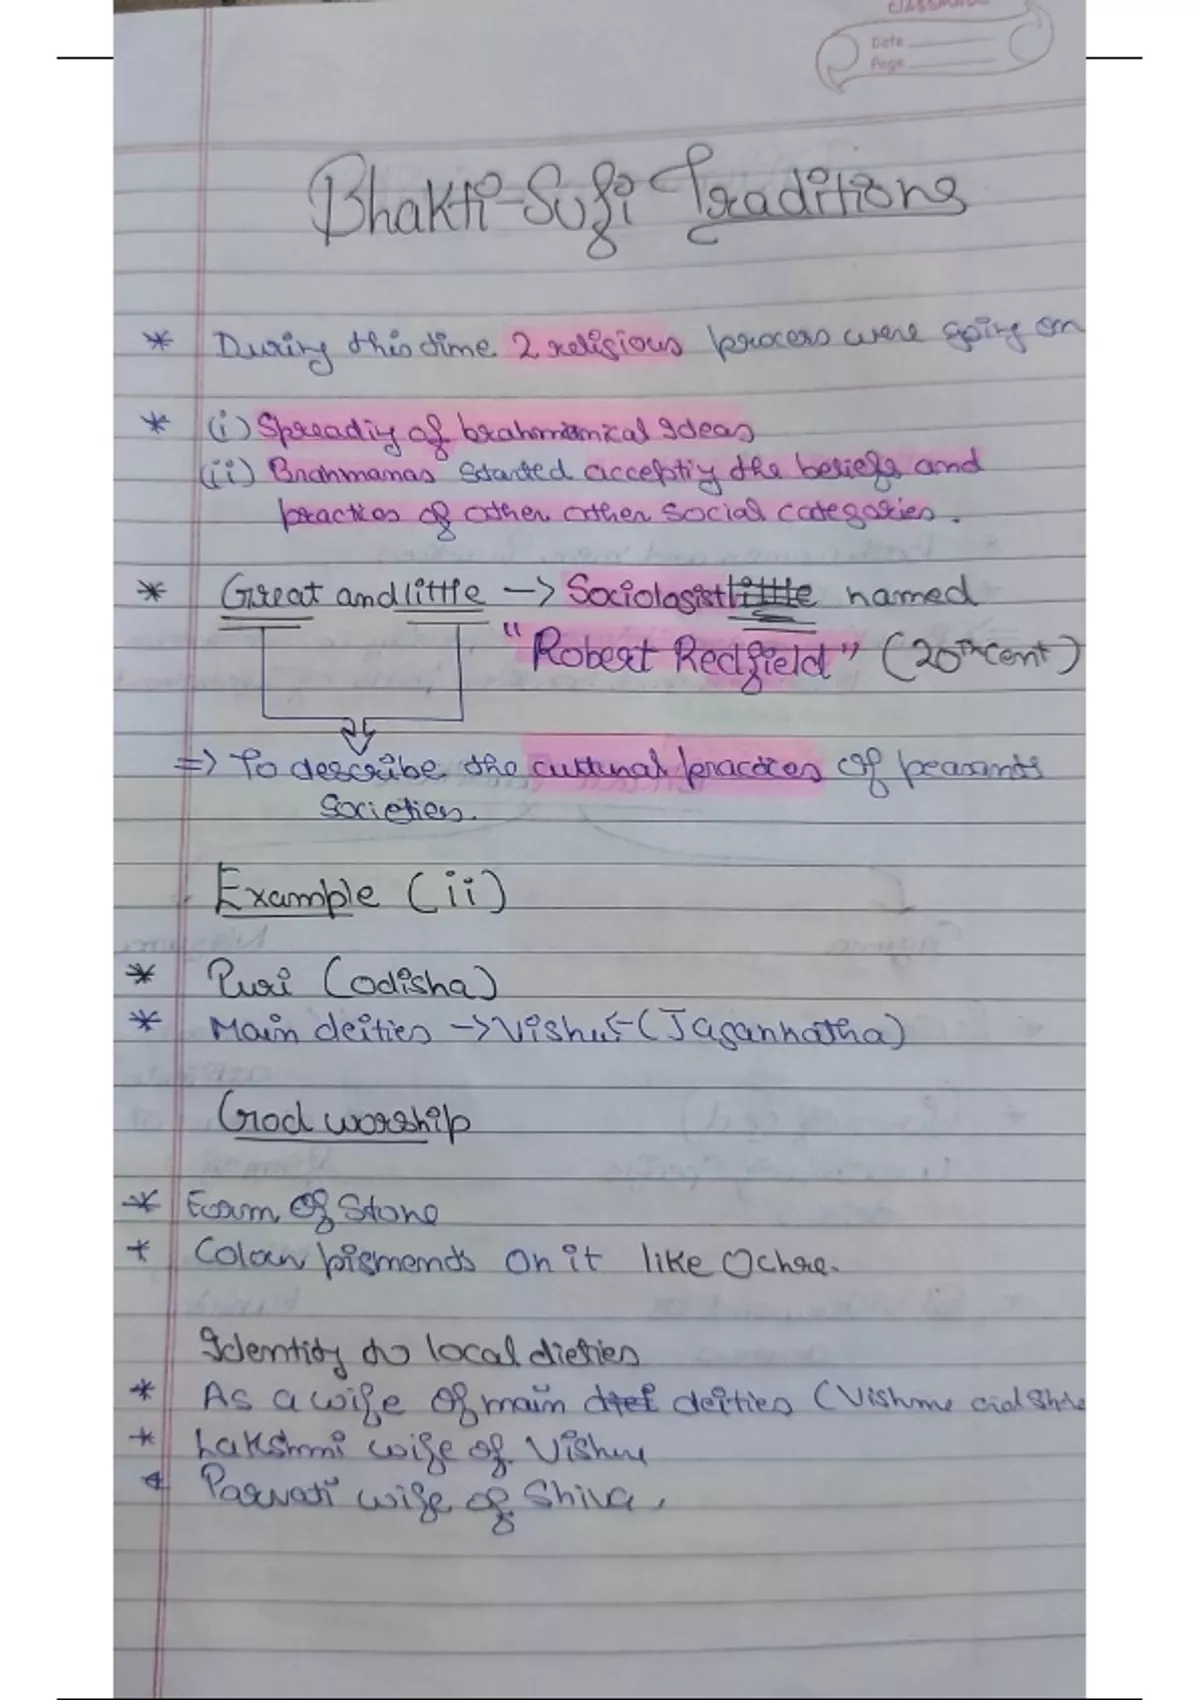 classmate
Date
Page
Bhakti-Sufi Traditions
* During this time 2 religious process were going on
* (i) Spreading of brahmanical Ideas
(ii) Brahmanas started accepting the beliefs and
practices of other other social categories.
* Great and little -> Sociologist little named
"Robert Redfield" (20th cent)
=> To describe the cultural practices of peasants
societies.
Example (ii)
* Puri (Odisha)
* Main deities -> Vishnu (Jagannatha)
God worship
* Form of Stone
* Colour pigments on it like Ochre.
Identity to local dieties
* As a wife of main deities (Vishnu and Shiv
* Lakshmi wife of Vishnu
* Parvati wife of Shiva,